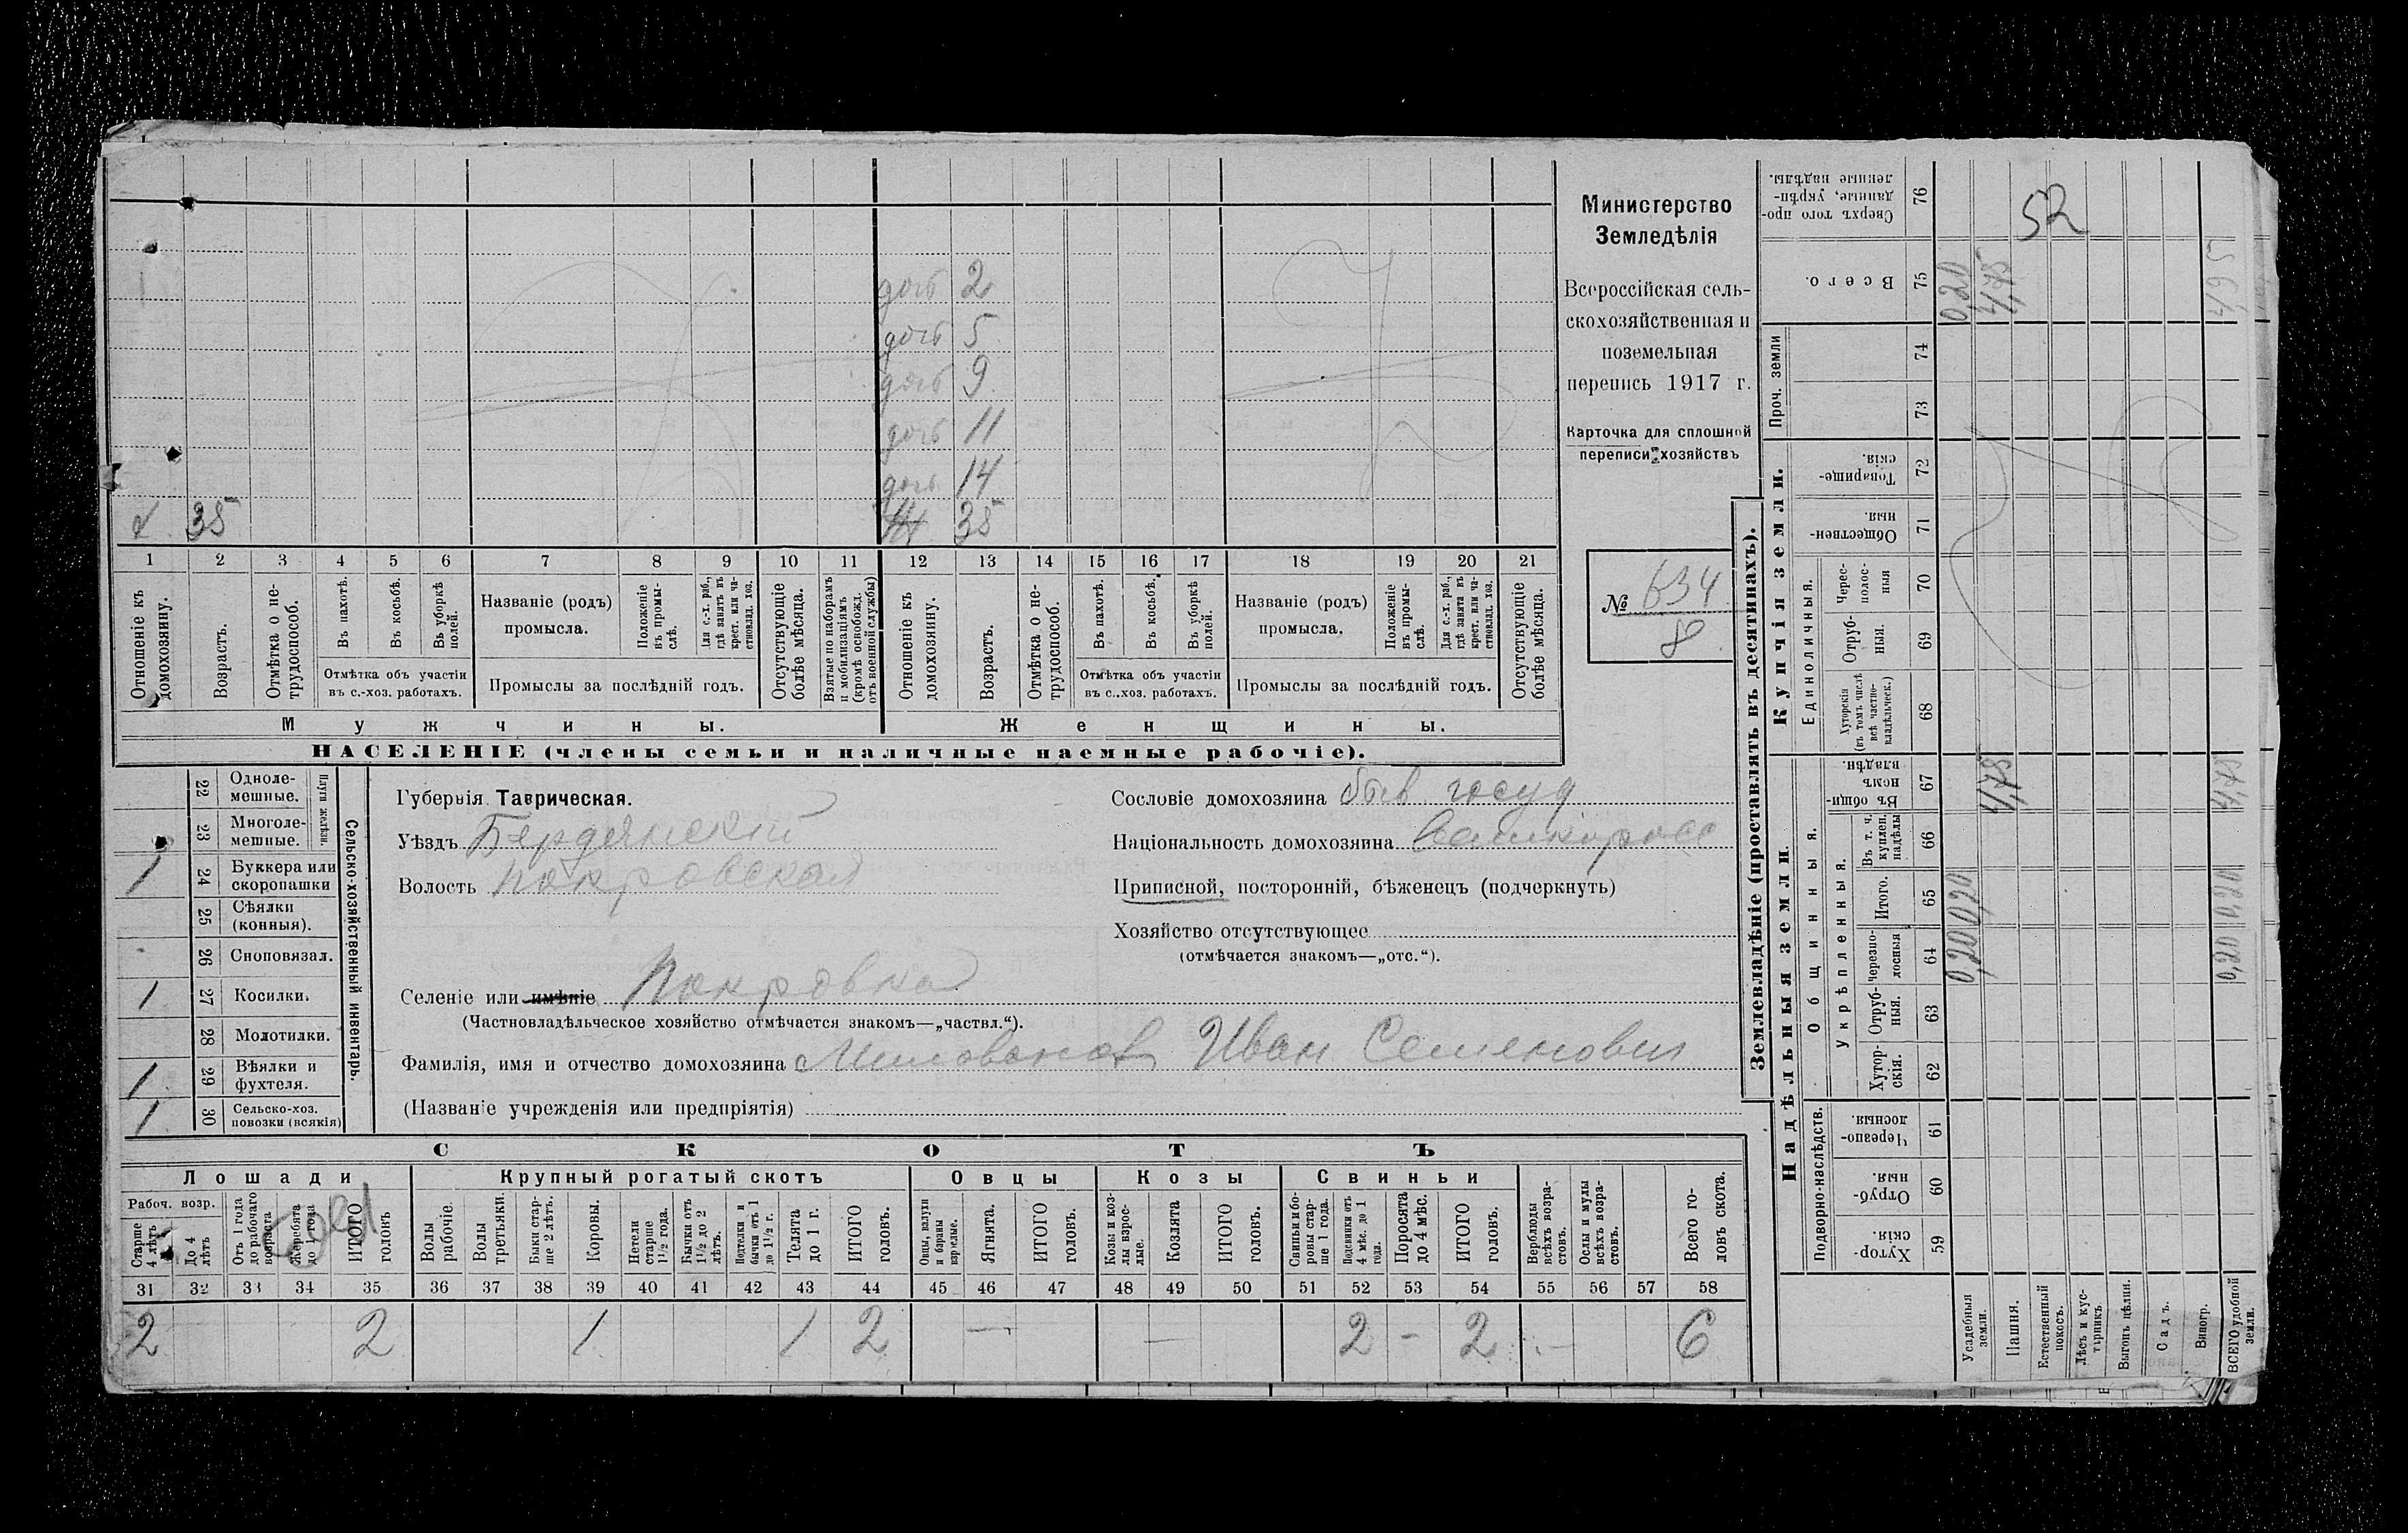 дочь 2
дочь 5
дочь 9
дочь 11
дочь 14
35 35
1 2 3 4 5 6 7 8 9 10 11 12 13 14 15 16 17 18 19 20 21
Отношеніе къ домохозяину.
Возрастъ.
Отмѣтка о нетрудоспособ.
Въ пахотѣ.
Въ косьбѣ.
Въ уборкѣ полей.
Отмѣтка объ участіи въ с.-хоз. работахъ.
Названіе (родъ) промысла.
Положеніе въ промыслѣ.
Для с.-х. раб., гдѣ занятъ въ крест. или частновлад. хоз.
Промыслы за послѣдній годъ.
Отсутствующіе болѣе мѣсяца.
Взятые по наборамъ и мобилизаціямъ (кромѣ освобожд. отъ военной службы)
Отношеніе къ домохозяину.
Возрастъ.
Отмѣтка о нетрудоспособ.
Въ пахотѣ.
Въ косьбѣ.
Въ уборкѣ полей.
Отмѣтка объ участіи въ с.-хоз. работахъ.
Названіе (родъ) промысла.
Положеніе въ промыслѣ.
Для с.-х. раб., гдѣ занята въ крест. или частновлад. хоз.
Промыслы за послѣдній годъ.
Отсутствующіе болѣе мѣсяца.
Мужчины. Женщины.
НАСЕЛЕНІЕ (члены семьи и наличные наемные рабочіе).
Министерство
Земледѣлія
Всероссійская сель-
скохозяйственная и
поземельная
перепись 1917 г.
Карточка для сплошной
переписи хозяйствъ
№ 634
8
Сельско-хозяйственный инвентарь.
Плуги желѣзн.
22 Одноле-
мешные.
23 Многоле-
мешные.
1 24 Буккера или
скоропашки
25 Сѣялки
(конныя).
26 Сноповязал.
1 27 Косилки.
28 Молотилки.
1 29 Вѣялки и
фухтеля.
1 30 Сельско-хоз.
повозки (всякія)
Губернія Таврическая.
Уѣздъ Бердянскій
Волость Покровская
Селеніе или имѣніе Покровка
(Частновладѣльческое хозяйство отмѣчается знакомъ—„частвл.“).
Фамилія, имя и отчество домохозяина Миловонов Иван Семенович
(Названіе учрежденія или предпріятія)
Сословіе домохозяина быв госуд
Національность домохозяина
Приписной, посторонній, бѣженецъ (подчеркнуть)
Хозяйство отсутствующее
(отмѣчается знакомъ—„отс.“).
СКОТЪ
Лошади Крупный рогатый скотъ Овцы Козы Свиньи
Рабоч. возр.
Старше 4 лѣтъ
До 4 лѣтъ
Отъ 1 года до рабочаго возраста
Жеребята до 1 года
ИТОГО головъ
Волы рабочіе.
Волы третьяки.
Быки старше 2 лѣтъ.
Коровы.
Нетели старше 1½ года.
Бычки отъ 1½ до 2 лѣтъ.
Подтелки и бычки отъ 1 до 1½ г.
Телята до 1 г.
ИТОГО головъ.
Овцы, валухи и бараны взрослые.
Ягнята.
ИТОГО головъ.
Козы и козлы взрослые.
Козлята
ИТОГО головъ.
Свиньи и боровы старше 1 года.
Подсвинки отъ 4 мѣс. до 1 года.
Поросята до 4 мѣс.
ИТОГО головъ.
Верблюды всѣхъ возрастовъ.
Ослы и мулы всѣхъ возрастовъ.
Всего головъ скота.
31 32 33 34 35 36 37 38 39 40 41 42 43 44 45 46 47 48 49 50 51 52 53 54 55 56 57 58
2 2 1 1 2 — — 2 - 2 — 6
Землевладѣніе (проставлять въ десятинахъ).
Надѣльныя земли
Купчія земли.
Проч. земли
52
Сверхъ того проданные, укрѣпленные надѣлы. 76
Всего. 75 0,20 4,75 4,95
74
73
Товарищескія. 72
Общественныя. 71
Единоличныя.
Чересполосныя 70
Отрубныя. 69
Хуторскія (въ томъ числѣ всѣ частновладѣльческ.) 68
Общинныя.
Въ общинномъ владѣн. 67 4,75 4,75
Укрѣпленныя.
Въ т. ч. куплен. надѣлы 66
Итого. 65 0,20 0,20
Черезполосныя 64 0,20 0,20
Отрубныя. 63
Хуторскія. 62
Подворно-наслѣдств.
Черезполосныя 61
Отрубныя. 60
Хуторскія. 59
Усадебныя земли.
Пашня.
Естественный покосъ.
Лѣсъ и кустарникъ
Выгонъ цѣлин.
Садъ.
Виногр.
ВСЕГО удобной земли.